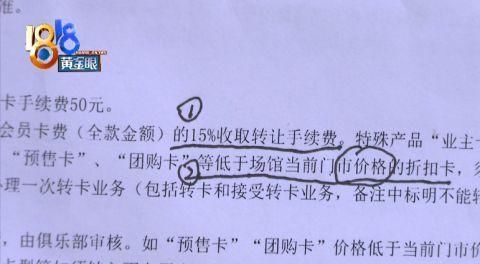 1818
黄金眼
准。
卡手续费50元。
①
会员卡费（全款金额）的15%收取转让手续费。特殊产品“业主卡
“预售卡”、“团购卡”等低于场馆当前门市价格的折扣卡，须
②
办理一次转卡业务（包括转卡和接受转卡业务，备注中标明不能转
，由俱乐部审核。如“预售卡”“团购卡”价格低于当前门市价